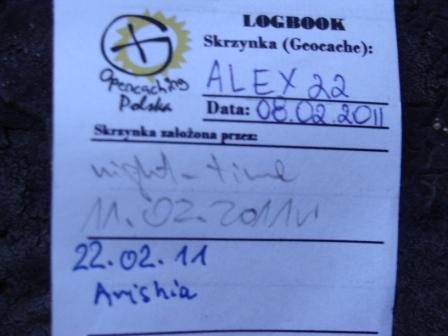 LOGBOOK
Skrzynka (Geocache):
ALEX 22
Data: 08.02.2011
Opencaching
Polska
Skrzynka założona przez:
night-time
11.02.2011
22.02.11
Arishia